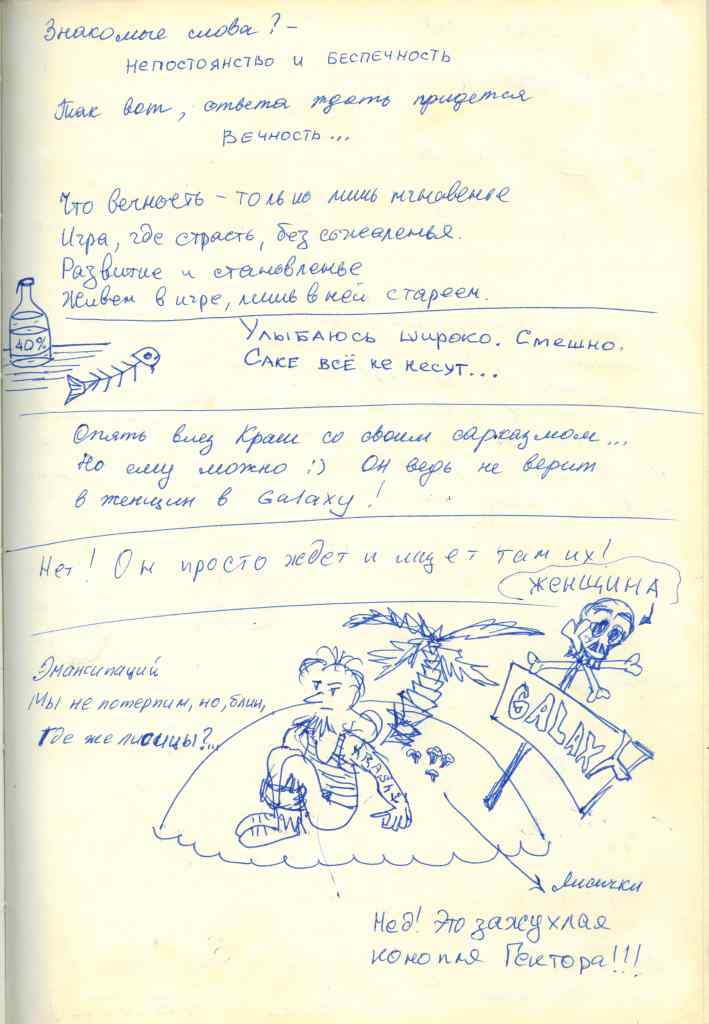 Знакомые слова? –
непостоянство и беспечность
Так вот, ответа ждать придется
Вечность...
Что вечность – только лишь мгновенье
Игра, где страсть, без сожаленья.
Развитие и становленье
Живем в игре, лишь в ней стареем.
40%
Улыбаюсь широко. Смешно.
Саке всё не несут...
Опять влез Краш со своим сарказмом...
Но ему можно :) Он ведь не верит
в женщин в Galaxy!
Нет! Он просто ждет и ищет там их!
ЖЕНЩИНА
Эмансипаций
Мы не потерпим, но, блин,
Где же лисицы?...
GALAXY
KRASH
Лисички
Нед! Это зажухлая
конопля Гектора!!!